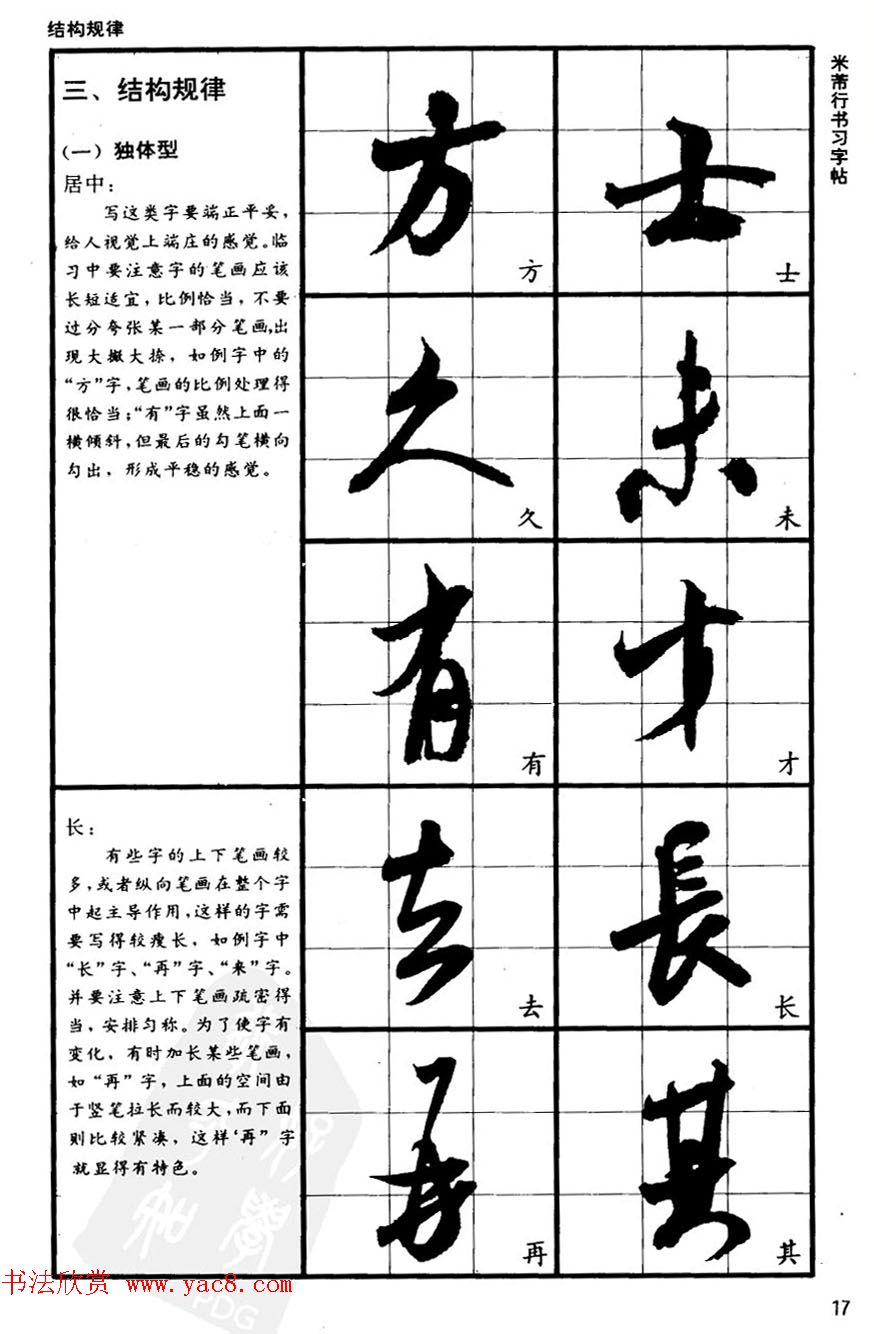 结构规律
米芾行书习字帖
三、结构规律
（一）独体型
居中：
写这类字要端正平妥，
给人视觉上端庄的感觉。临
习中要注意字的笔画应该
长短适宜，比例恰当，不要
过分夸张某一部分笔画，出
现大撇大捺，如例字中的
“方”字，笔画的比例处理得
很恰当；“有”字虽然上面一
横倾斜，但最后的勾笔横向
勾出，形成平稳的感觉。
方
士
方
士
久
未
久
未
有
才
有
才
长：
有些字的上下笔画较
多，或者纵向笔画在整个字
中起主导作用，这样的字需
要写得较瘦长，如例字中
“长”字、“再”字、“来”字。
并要注意上下笔画疏密得
当，安排匀称。为了使字有
变化，有时加长某些笔画，
如“再”字，上面的空间由
于竖笔拉长而较大，而下面
则比较紧凑，这样‘再”字
就显得有特色。
去
長
去
长
再
其
再
其
书法欣赏 www.yac8.com
PDG
17